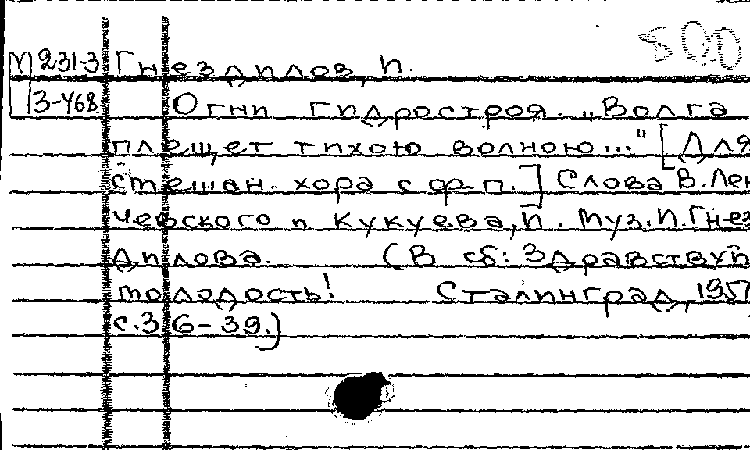 500
М 231-3 Гнездилов, П.
З-468 Огни гидростроя. „Волга
плещет тихою волною..." [Для
смешан. хора с ф-п.] Слова В. Лен
чевского и Кукуева, П. Муз. П. Гнез
дилова. (В сб: Здравствуй
молодость! Сталинград, 195
с. 36-39.)